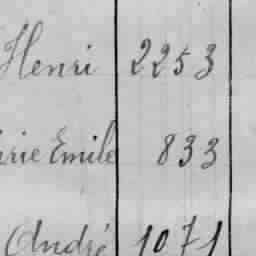 Henri 2253
rie Emile 833
André 1071